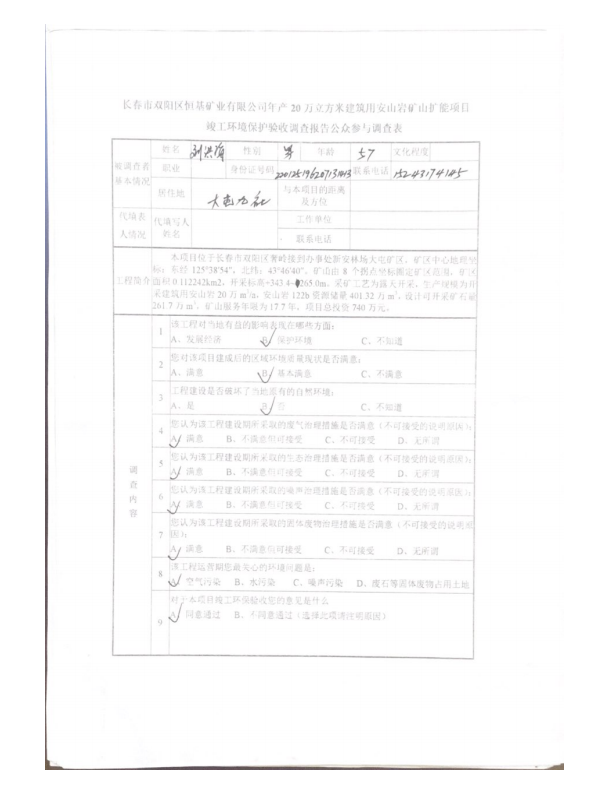 长春市双阳区恒基矿业有限公司年产 20 万立方米建筑用安山岩矿山扩能项目
竣工环境保护验收调查报告公众参与调查表
被调查者基本情况 姓名 性别 男 年龄 57 文化程度
职业 身份证号码 联系电话
居住地 与本项目的距离及方位
代填表人情况 代填写人姓名 工作单位
联系电话
工程简介 本项目位于长春市双阳区奢岭接到办事处新安林场大屯矿区,矿区中心地理坐
标:东经 125°38′54″,北纬:43°46′40″,矿山由 8 个拐点坐标圈定矿区范围,矿区
面积 0.112242km2,开采标高+343.4-+265.0m,采矿工艺为露天开采,生产规模为开
采建筑用安山岩 20 万 m³/a,安山岩 122b 资源储量 401.32 万 m³,设计可开采矿石量
261.7 万 m³,矿山服务年限为 17.7 年,项目总投资 740 万元。
调查内容
1 该工程对当地有益的影响表现在哪些方面:
A、发展经济 B、保护环境 C、不知道
2 您对该项目建成后的区域环境质量现状是否满意:
A、满意 B、基本满意 C、不满意
3 工程建设是否破坏了当地原有的自然环境:
A、是 B、否 C、不知道
4 您认为该工程建设期所采取的废气治理措施是否满意(不可接受的说明原因):
A、满意 B、不满意但可接受 C、不可接受 D、无所谓
5 您认为该工程建设期所采取的生态治理措施是否满意(不可接受的说明原因):
A、满意 B、不满意但可接受 C、不可接受 D、无所谓
6 您认为该工程建设期所采取的噪声治理措施是否满意(不可接受的说明原因):
A、满意 B、不满意但可接受 C、不可接受 D、无所谓
7 您认为该工程建设期所采取的固体废物治理措施是否满意(不可接受的说明原
因):
A、满意 B、不满意但可接受 C、不可接受 D、无所谓
8 该工程运营期您最关心的环境问题是:
A、空气污染 B、水污染 C、噪声污染 D、废石等固体废物占用土地
9 对于本项目竣工环保验收您的意见是什么
A、同意通过 B、不同意通过(选择此项请注明原因)